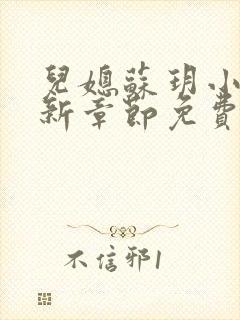 兒媳蘇玥小
新章節免費
不信邪1